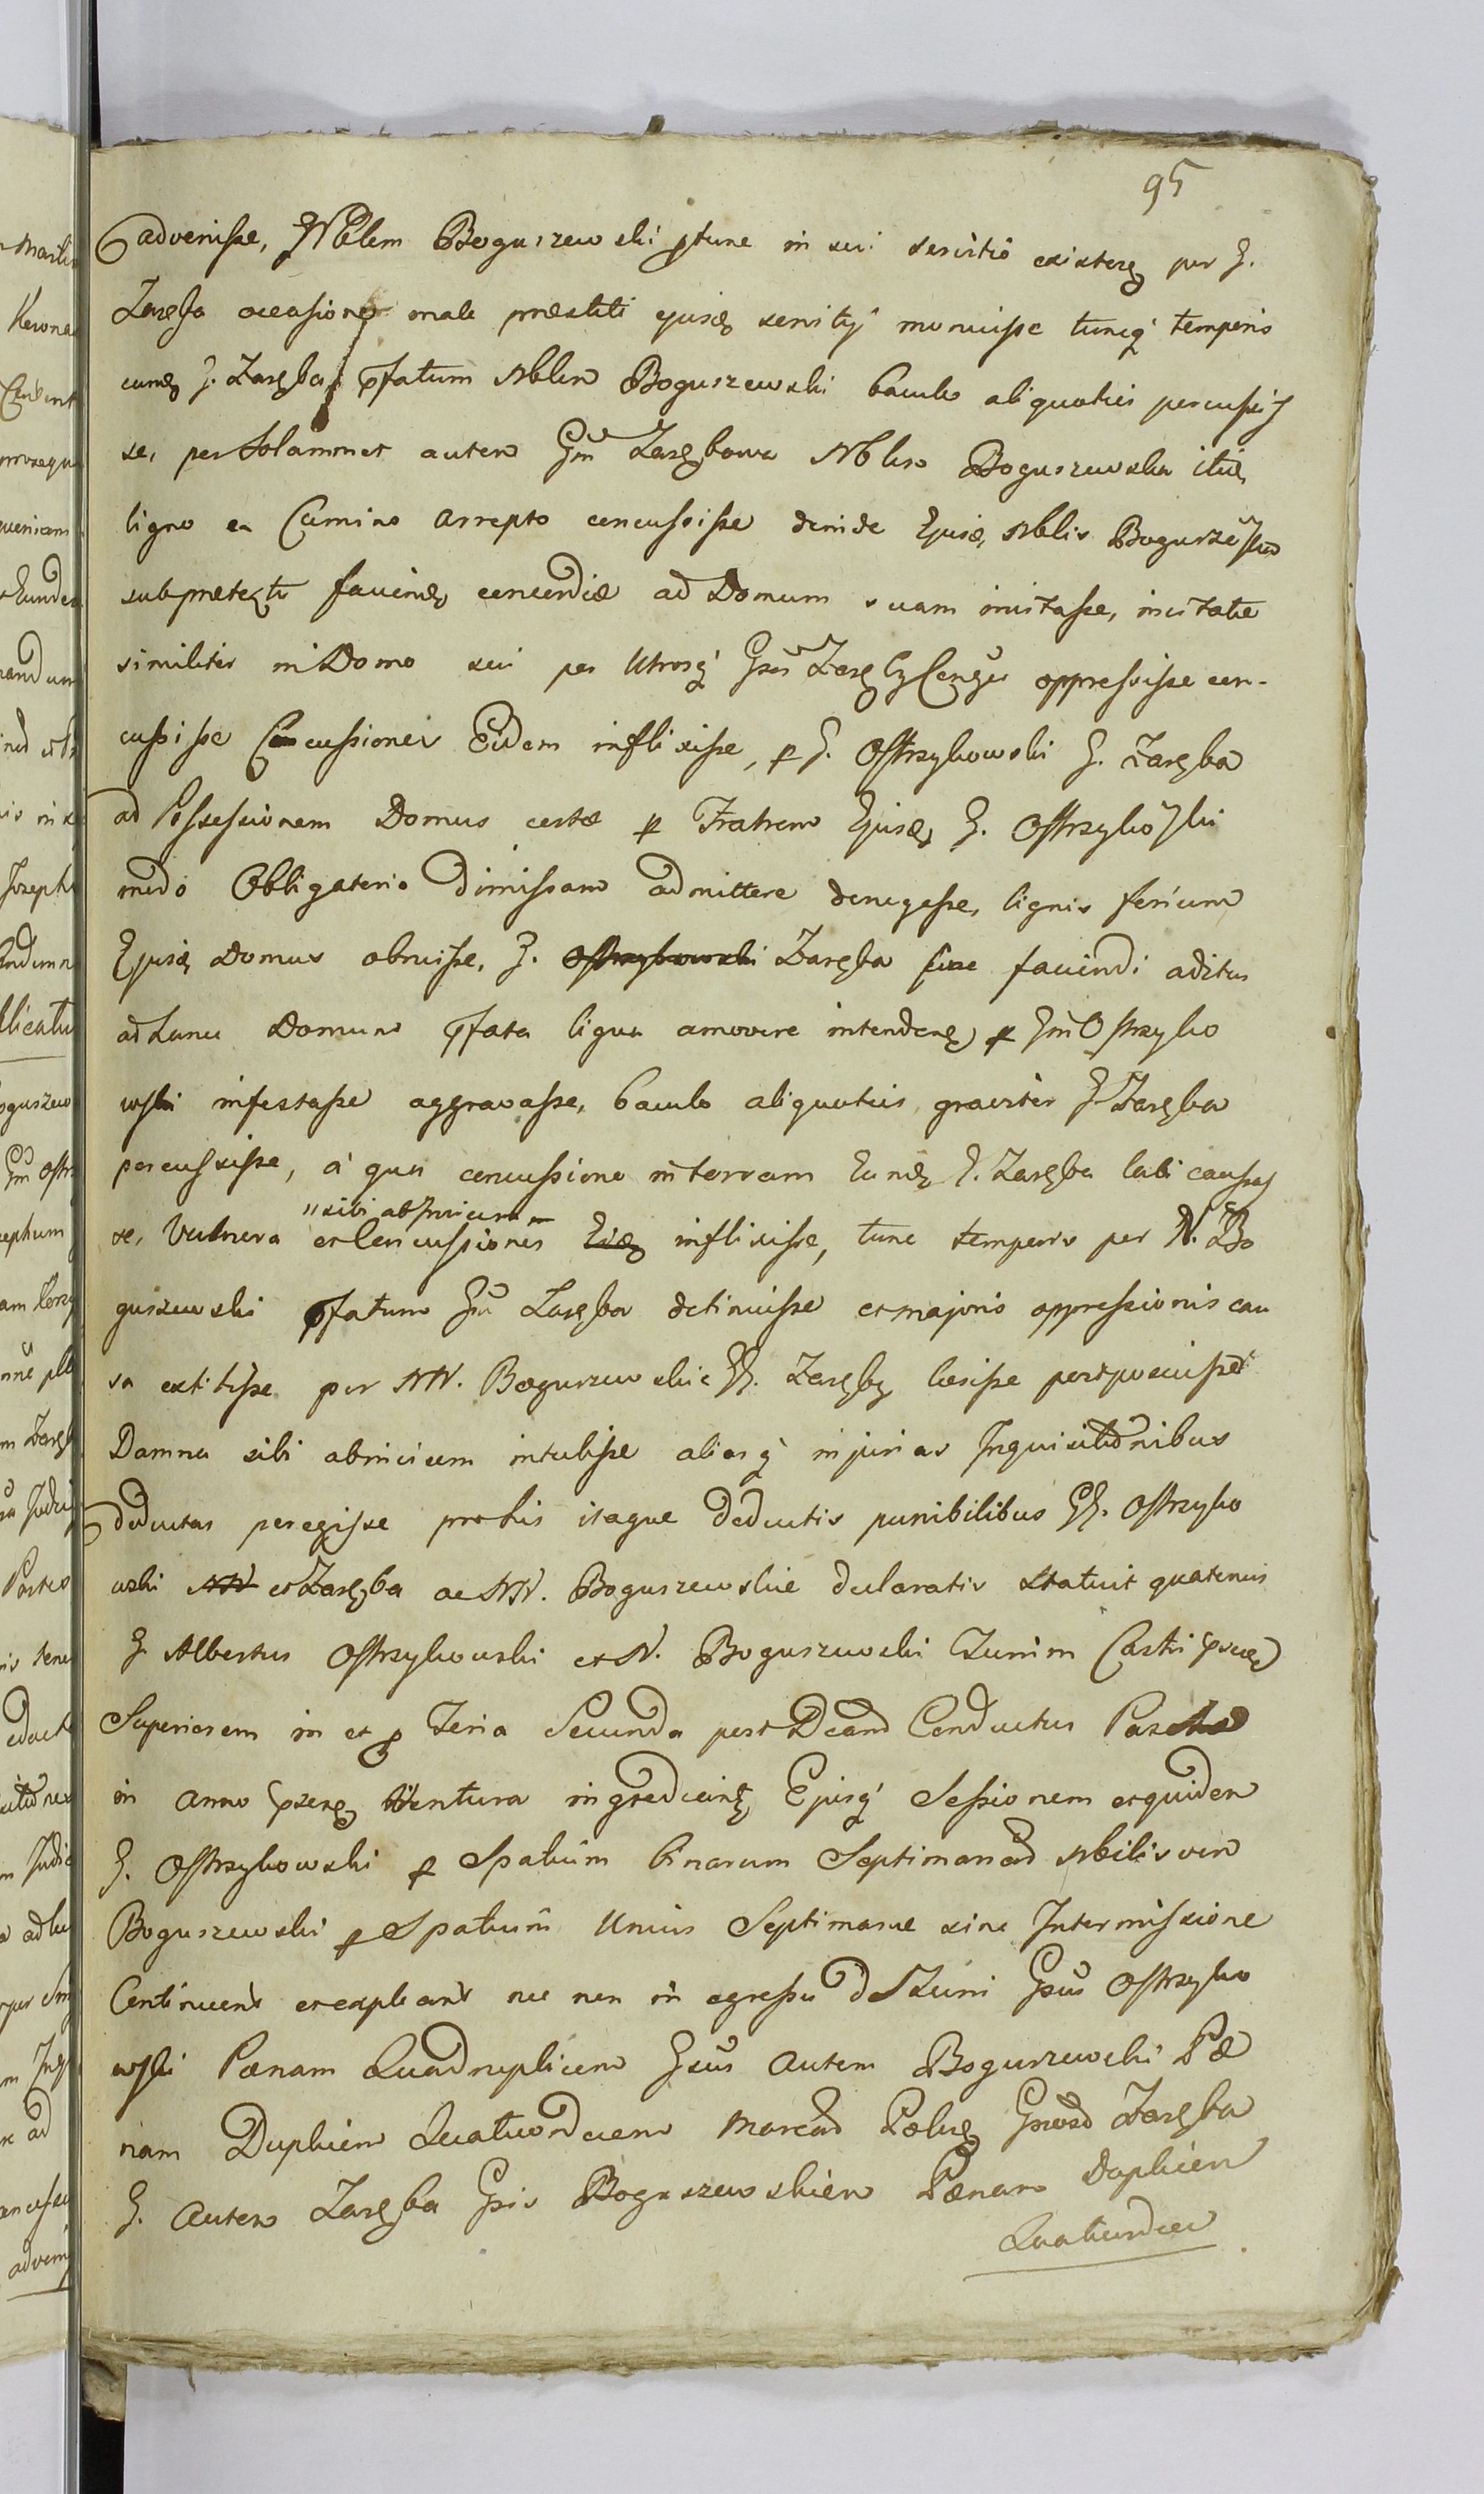 95
advenisse, Nblem Boguszewski ptunc in sui servitio existeñ per G.
Zaręba occasione male præstiti ejusd servitÿ monuisse tuncq temporis
eund G. Zaręba pfatum Nblem Boguszewski baculo aliquoties percussis
se, per Solammet autem Gm Zarębowa Nblem Boguszewska itid
ligno ex Camino arrepto concussisse deinde Ejusd Nblis Boguszewskie
sub prætextu faciend concordiæ ad Domum suam invitasse, invitatæ
similiter in Domo sui per Utrosq Gsos Zaręby Conges oppressisse con-
cussisse Concussiones Eidem inflixisse, p G. Ostrzykowski G. Zaręba
ad Possessionem Domus certæ p Fratrem Ejusd G. Ostrzykowski
modo Obligatorio dimissam admittere denegasse, lignis fericum
Ejusd Domus obruisse, G. Ostrzykowski Zaręba sine faciendi aditus
ad hanc Domum pfata ligna amovere intendeñ p Gm Ostrzyko
wski infestasse aggravasse, baculo aliquoties graviter G. Zaręba
percussisse, à qua concussione in terram Eund G. Zaręba labi causas
"sibi abinvicem
se, Vulnera et Concussiones Eisd inflixisse, tunc temporis per N. Bo
guszewski pfatum Gm Zaręba detinuisse et majoris oppressionis cau
sa extitisse per NN. Boguszewskie GG. Zaręby læsisse postposuisse
Damna sibi abinvicem intulisse aliasq injurias Inquisitionibus
deductas peregisse pro his itaque deductis punibilibus GG. Ostrzyko
wski NN et Zaręba ac NN. Boguszewskie declaratis Statuit quatenus
G. Albertus Ostrzykowski et N. Boguszewski Turrim Castri psend
Superiorem in et p Feria Secunda post Dcam Conductus Paschæ
in anno pzenę Ventura ingrediantę Ejusq Sessionem et quidem
G. Ostrzykowski p Spatium binarum Septimanarū Nbilis vero
Boguszewski p Spatium Unius Septimanæ sine Intermissione
Continuent et expleant nec non in egressu d Turri Gsus Ostrzyko
wski Pænam Quadruplicem Gsus autem Boguszewski Pæ
nam Duplicem Quatuordecem Marcarū Polneę Gsoro Zaręba
G. autem Zaręba Gsis Boguszewskiem Pænam Duplicem
Quatuordeci